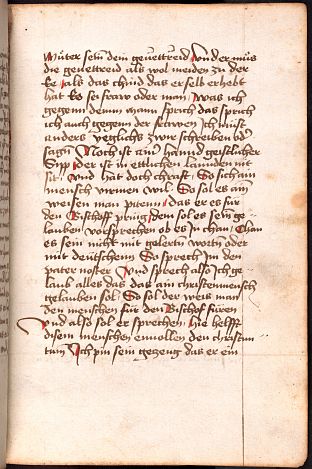 müter sein dem geuettreid Under müs
die geuettreid als wol meiden zu der
ke als das chind das er selb erhebt
hat Es sei fraw oder man Was ich
gegenn denn mann sprach das sprich
ich auch gegenn der frawen Ich müst
anders yeglichs zwir schreiben vnd
sagn Noch ist ain hannd geistlicher
Sipp der ist in ettlichen lannden nit
sit Und hat doch chraft So sich ain
mensch virmen wil So sol es ain
weisen man pitenn das er es für
den Bischoff pring den sol es sein ge-
lauben vorsprechen ob es in chan Chan
es sein nicht mit gelertn wortn oder
mit deutschenn So sprech Im den
pater noster Und sprech also Ich ge-
laub alles das das ain christenmensch
gelauben sol So sol der weis man
den menschen für den Bischof füren
Und also sol er sprechen hie helfft
disem menschen ervollen den christn
tum Ich pin sein gezeug das er ein